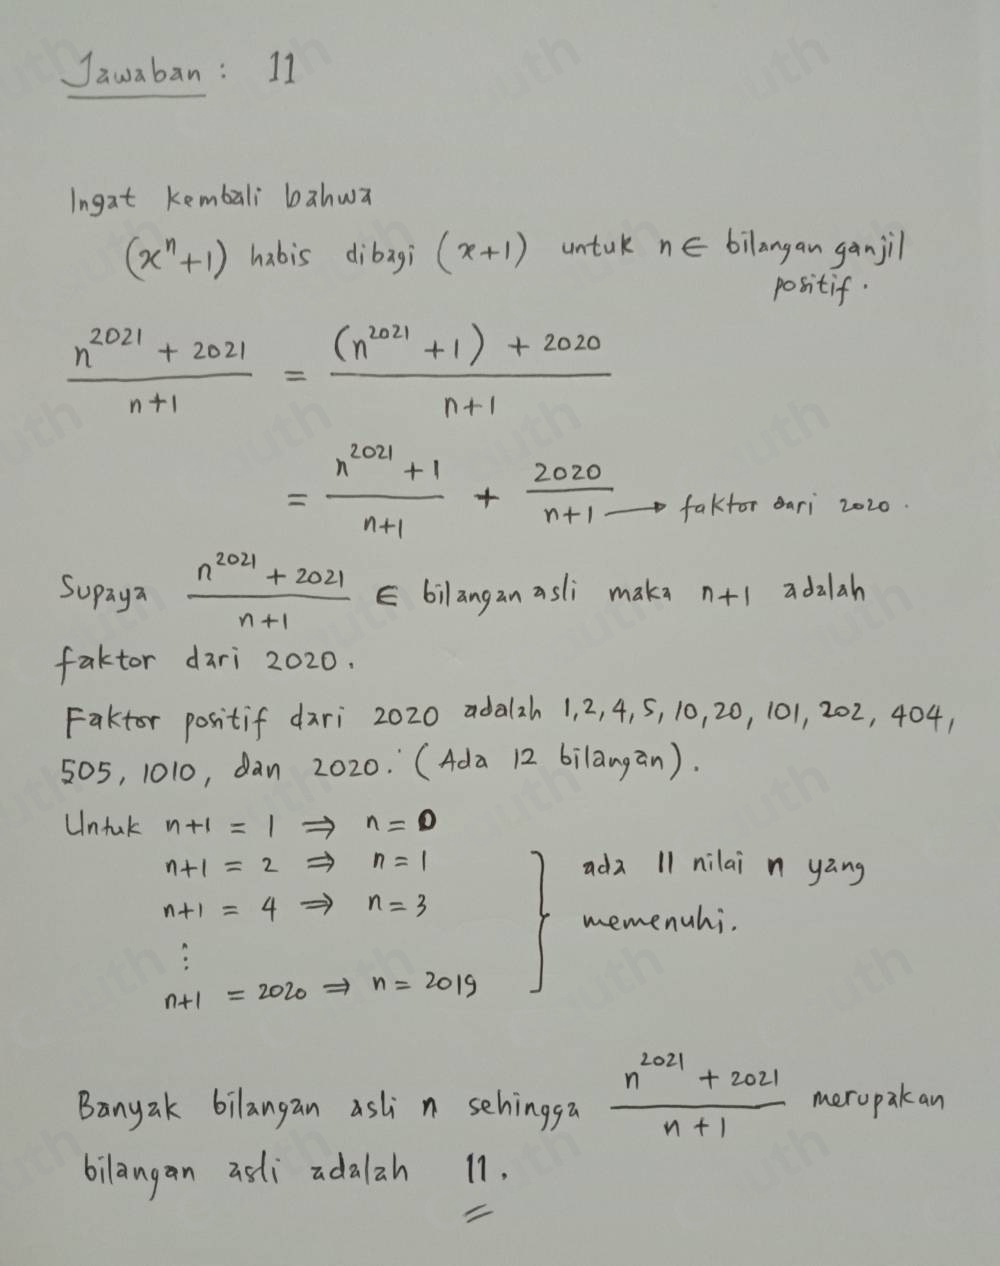 Jawaban : 11
Ingat kembali bahwa
(x^n+1) habis dibagi (x+1) untuk n ∈ bilangan ganjil
positif.
(n^2021 + 2021)/(n+1) = ((n^2021 + 1) + 2020)/(n+1)
= (n^2021 + 1)/(n+1) + 2020/(n+1) → faktor dari 2020.
Supaya (n^2021 + 2021)/(n+1) ∈ bilangan asli maka n+1 adalah
faktor dari 2020.
Faktor positif dari 2020 adalah 1, 2, 4, 5, 10, 20, 101, 202, 404,
505, 1010, dan 2020. (Ada 12 bilangan).
Untuk n+1 = 1 ⇒ n = 0
n+1 = 2 ⇒ n = 1
n+1 = 4 ⇒ n = 3
⋮
n+1 = 2020 ⇒ n = 2019
} ada 11 nilai n yang
memenuhi.
Banyak bilangan asli n sehingga (n^2021 + 2021)/(n+1) merupakan
bilangan asli adalah 11.